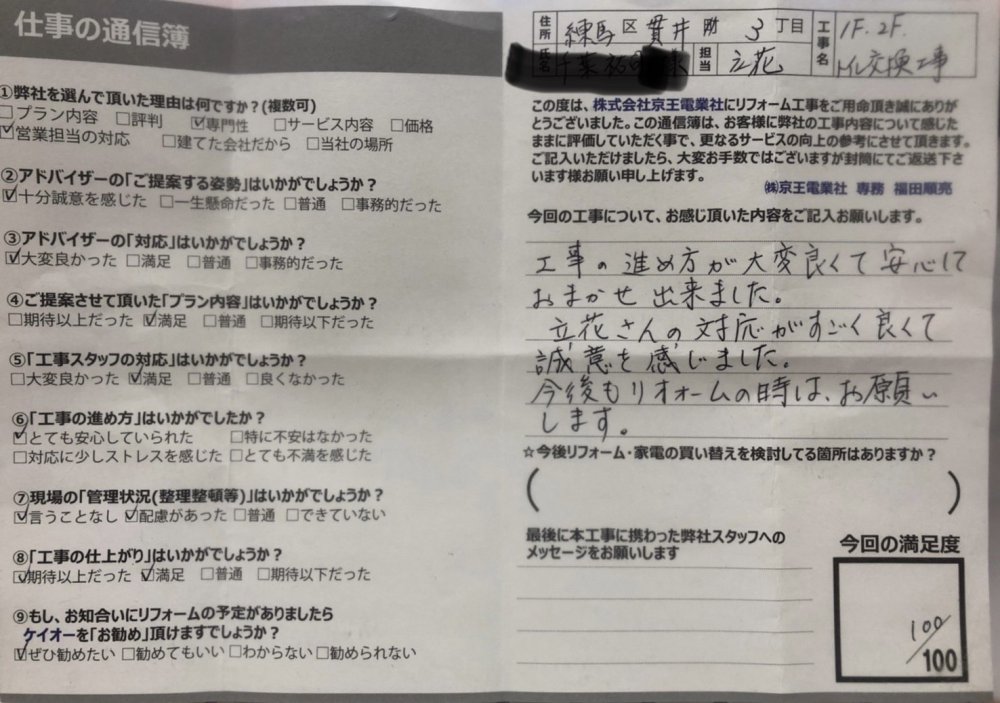 仕事の通信簿
①弊社を選んで頂いた理由は何ですか?(複数可)
□プラン内容 □評判 ☑専門性 □サービス内容 □価格
☑営業担当の対応 □建てた会社だから □当社の場所
②アドバイザーの「ご提案する姿勢」はいかがでしょうか?
☑十分誠意を感じた □一生懸命だった □普通 □事務的だった
③アドバイザーの「対応」はいかがでしょうか?
☑大変良かった □満足 □普通 □事務的だった
④ご提案させて頂いた「プラン内容」はいかがでしょうか?
□期待以上だった ☑満足 □普通 □期待以下だった
⑤「工事スタッフの対応」はいかがでしょうか?
□大変良かった ☑満足 □普通 □良くなかった
⑥「工事の進め方」はいかがでしたか?
☑とても安心していられた □特に不安はなかった
□対応に少しストレスを感じた □とても不満を感じた
⑦現場の「管理状況(整理整頓等)」はいかがでしょうか?
☑言うことなし ☑配慮があった □普通 □できていない
⑧「工事の仕上がり」はいかがでしょうか?
☑期待以上だった ☑満足 □普通 □期待以下だった
⑨もし、お知合いにリフォームの予定がありましたら
ケイオーを「お勧め」頂けますでしょうか?
☑ぜひ勧めたい □勧めてもいい □わからない □勧められない
住所 練馬区貫井 3丁目
氏名
担当 立花
工事名 1F.2F.
トイレ交換工事
この度は、株式会社京王電業社にリフォーム工事をご用命頂き誠にありが
とうございました。この通信簿は、お客様に弊社の工事内容について感じた
ままに評価していただく事で、更なるサービスの向上の参考にさせて頂きます。
ご記入いただけましたら、大変お手数ではございますが封筒にてご返送下さ
います様お願い申し上げます。
㈱京王電業社 専務 福田順亮
今回の工事について、お感じ頂いた内容をご記入お願いします。
工事の進め方が大変良くて安心して
おまかせ出来ました。
立花さんの対応がすごく良くて
誠意を感じました。
今後もリオォームの時は、お願い
します。
☆今後リフォーム・家電の買い替えを検討してる箇所はありますか?
( )
最後に本工事に携わった弊社スタッフへの
メッセージをお願いします
今回の満足度
100/100